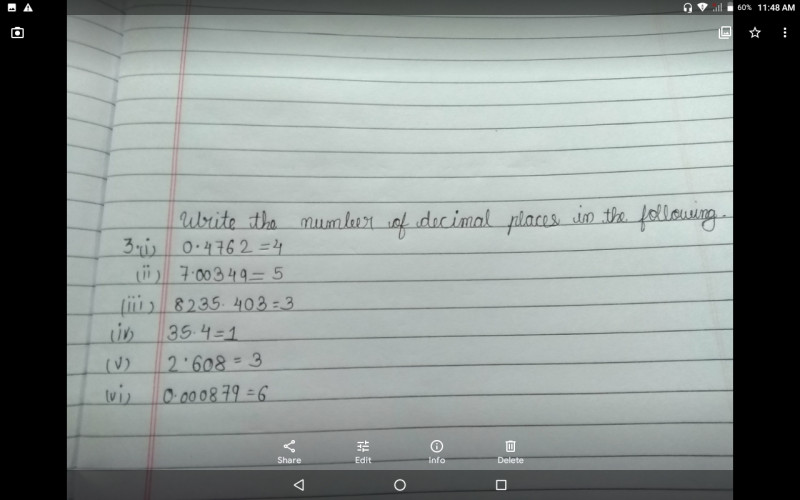 60% 11:48 AM
Write the number of decimal places in the following.
3.(i) 0.4762 = 4
(ii) 7.00349 = 5
(iii) 8235.403 = 3
(iv) 35.4 = 1
(v) 2.608 = 3
(vi) 0.000879 = 6
Share Edit Info Delete